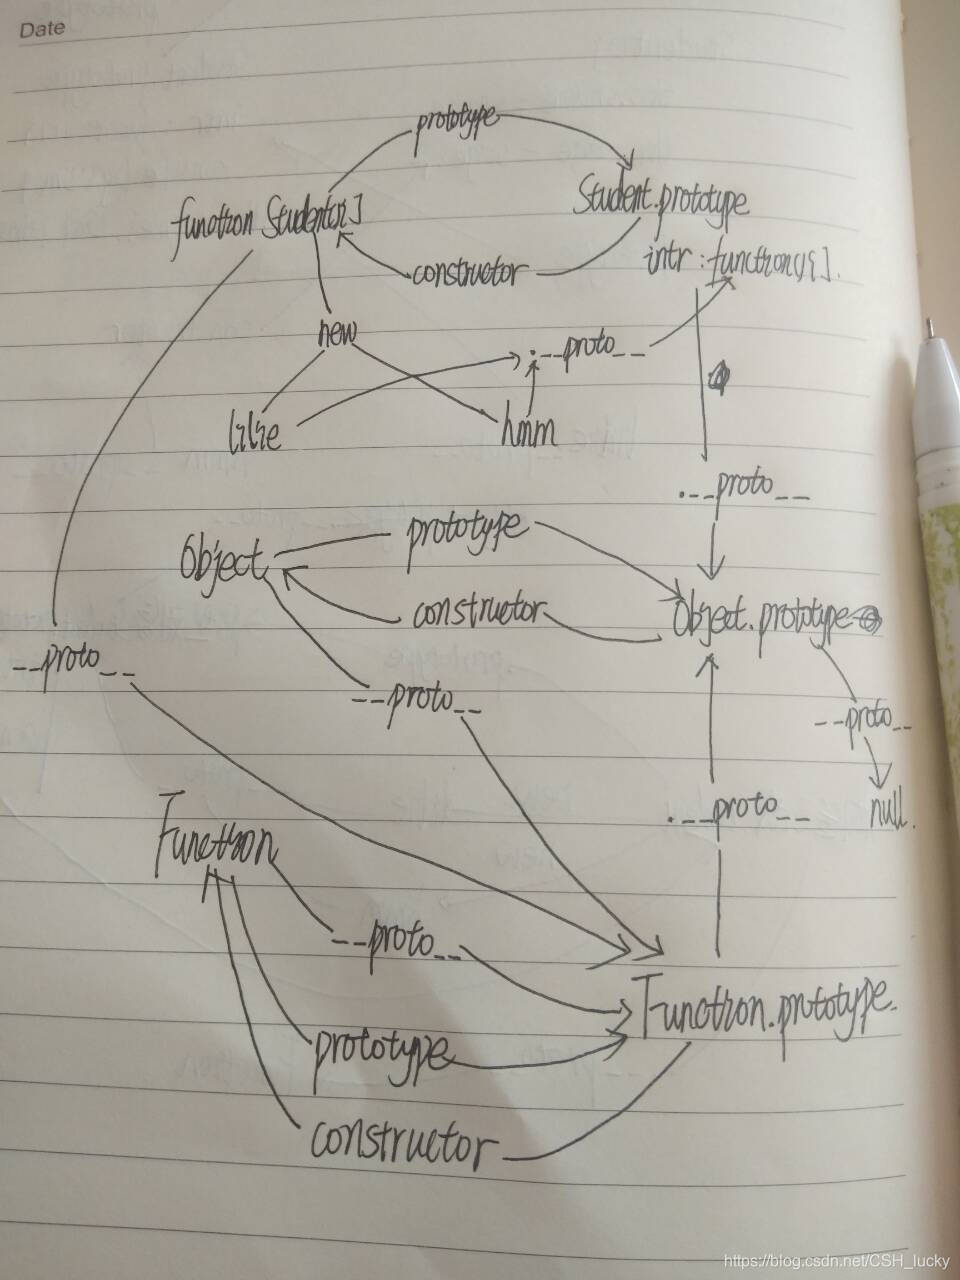 Date
prototype
function Student(){}
Student.prototype
constructor
intr : function(){}.
new
.__proto__
lilie
hmm
.__proto__
Object
prototype
constructor
Object.prototype
__proto__
__proto__
__proto__
.__proto__
null.
Function
__proto__
Function.prototype.
prototype
constructor
https://blog.csdn.net/CSH_lucky